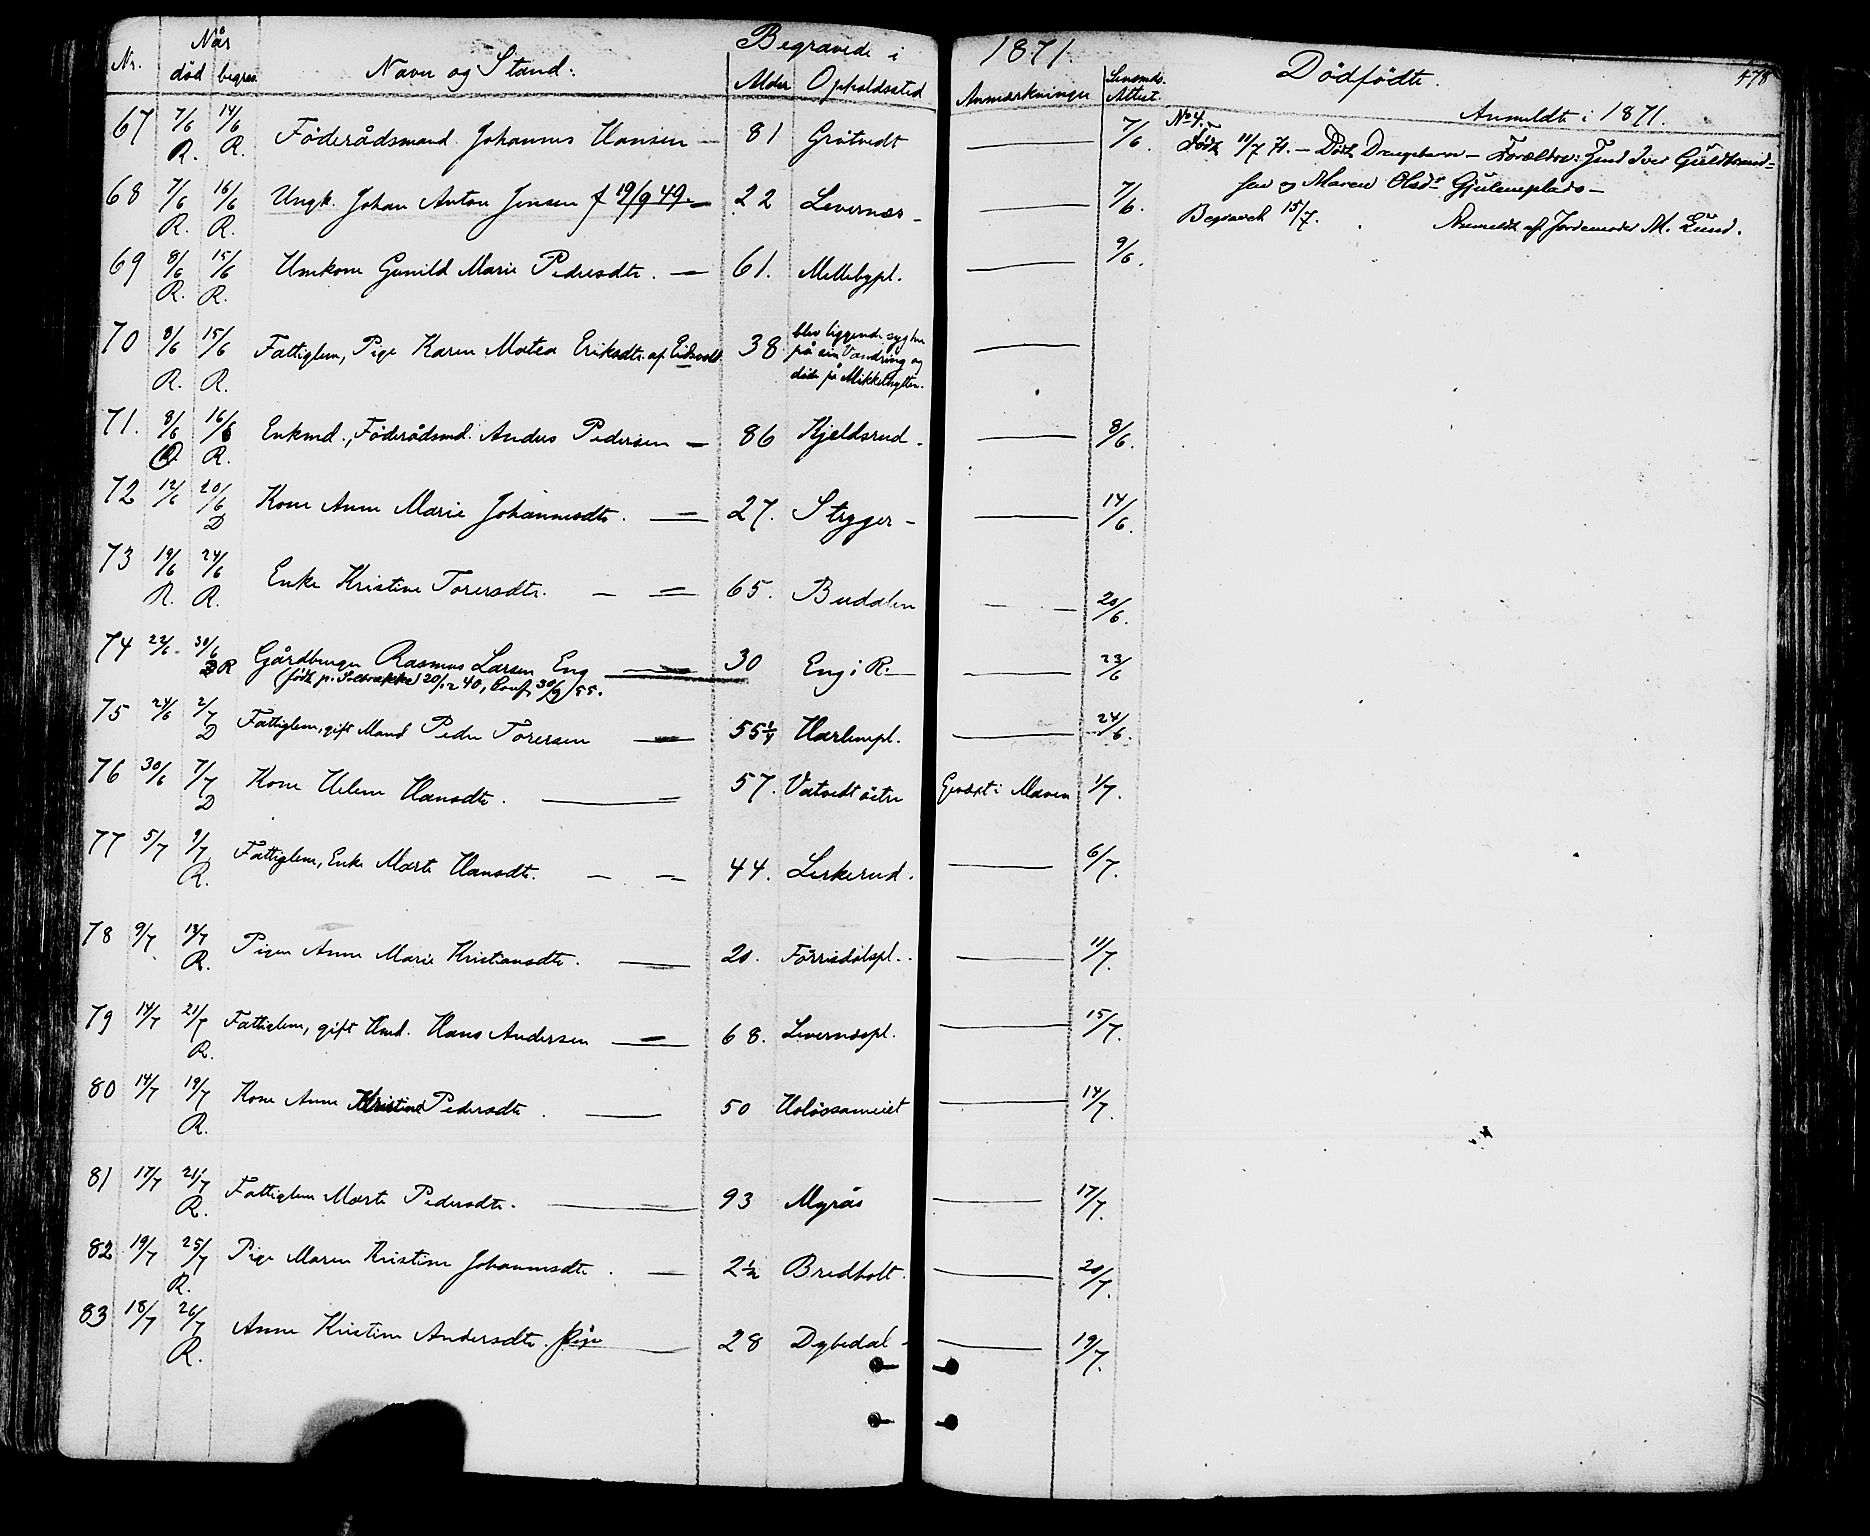 Begravede i 1871.
Nr. Når død begrav. Navn og Stand: Alder Opholdssted Anmærkninger Lensmds. Attest.
67 7/6 R. 14/6 R. Föderådsmand Johannes Hansen — 81 Grötvedt — 7/6.
68 7/6 R. 16/6 R. Ungk. Johan Anton Jensen f 19/9 49. — 22 Levernæs — 7/6.
69 8/6 R. 15/6 R. Umkone Gunild Marie Pedersdtr. — 61. Mellebypl. — 9/6.
70 8/6 R. 15/6 R. Fattiglem, Pige Karen Matea Eriksdtr. af Eidsvold. 38 blev liggende syg
på sin Vandring og
döde på —
71. 8/6 R. 16/6 R. Enkmd., Föderådsmd. Anders Pedersen — 86 Kjeldsrud. — 8/6.
72 12/6 20/6 D Kone Anne Marie Johannesdtr. — 27. Stryger — 14/6.
73 19/6 R. 24/6 R. Enke Kristine Torersdtr. — 65. Budalen — 20/6.
74 22/6. 30/6 D R Gårdbruger Rasmus Larsen Eng — 30 Eng i R. — 23/6
(födt p. 20/12 40, Conf. 30/9 55.
75 24/6 2/7 D Fattiglem, gift Mand Peder Torersen — 55 1/4 Harlempl. — 24/6.
76 30/6 7/7 D Kone Helene Hansdtr. — 57. Vatvedt östre i Maven 1/7.
77 5/7 9/7 R. Fattiglem, Enke Marte Hansdtr. — 44. Lerkerud. — 6/7.
78 9/7. 13/7 R. Pigen Anne Marie Kristiansdtr. — 20. Förrisdalspl. — 11/7.
79 14/7 21/7 R. Fattiglem, gift Hmd. Hans Andersen — 68. Levernæspl. — 15/7.
80 14/7 19/7 R. Kone Anne Kristine Pedersdtr. — 50 — 14/7.
81 17/7 21/7 R. Fattiglem Marte Pedersdtr. — 93 Myrås — 17/7.
82 19/7 25/7 R. Pige Maren Kristine Johannesdtr. — 2 1/2 Bredholt. — 20/7.
83 18/7 26/7 R. Anne Kristine Andersdtr. Pige — 28 Dybedal — 19/7.
478
Dödfödte.
Anmeldte i 1871.
No 4.
Födt 11/7 71. — Dödt Drengebarn — Forældre: Iver Guldbrand-
sen og Maren Olsdr. —
Begravet 15/7. Anmeldt af Jordemoder M. Lund.